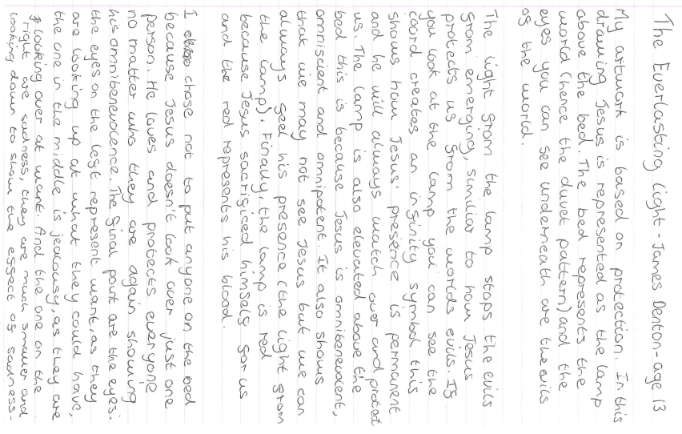 The Everlasting Light - James Denton - age 13
My artwork is based on protection. In this
drawing Jesus is represented as the lamp
above the bed. The bed represents the
world (hence the duvet pattern) and the
eyes you can see underneath are the evils
of the world.
The light from the lamp stops the evils
from emerging, similiar to how Jesus
protects us from the worlds evils. If
you look at the lamp you can see the
cord creates an infinity symbol this
shows how Jesus' presence is permanent
and he will always watch over and protect
us. The lamp is also elevated above the
bed this is because Jesus is omnibenevolent,
omniscient and omnipotent. It also shows
that we may not see Jesus but we can
always feel his presence (the light from
the lamp). Finally, the lamp is red
because Jesus sacrificed himself for us
and the red represents his blood.
I chose not to put anyone on the bed
because Jesus doesn't look over just one
person. He loves and protects everyone
no matter who they are again showing
his omnibenevolence. The final point are the eyes.
the eyes on the left represent want, as they
are looking up at what they could have,
the one in the middle is jealousy, as they are
looking over at want. And the one on the
right are sadness, they are much smaller and
looking down to show the effect of sadness.